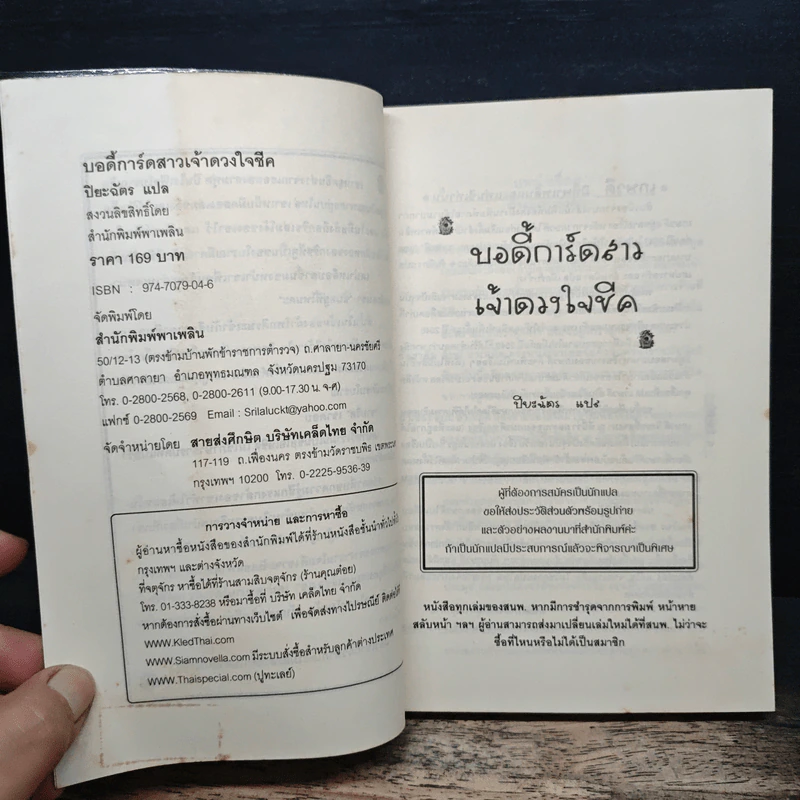 บอดี้การ์ดสาวเจ้าดวงใจชีค
ปิยะฉัตร แปล
สงวนลิขสิทธิ์โดย
สำนักพิมพ์พาเพลิน
ราคา 169 บาท
ISBN : 974-7079-04-6
จัดพิมพ์โดย
สำนักพิมพ์พาเพลิน
50/12-13 (ตรงข้ามบ้านพักข้าราชการตำรวจ) ถ.ศาลายา-นครชัยศรี
ตำบลศาลายา อำเภอพุทธมณฑล จังหวัดนครปฐม 73170
โทร. 0-2800-2568, 0-2800-2611 (9.00-17.30 น. จ-ศ)
แฟกซ์ 0-2800-2569 Email : Srilaluckt@yahoo.com
จัดจำหน่ายโดย สายส่งศึกษิต บริษัทเคล็ดไทย จำกัด
117-119 ถ.เฟื่องนคร ตรงข้ามวัดราชบพิธ
กรุงเทพฯ 10200 โทร. 0-2225-9536-39
การวางจำหน่าย และการหาซื้อ
ผู้อ่านหาซื้อหนังสือของสำนักพิมพ์ได้ที่ร้านหนังสือชั้นนำทั่วไป
กรุงเทพฯ และต่างจังหวัด
ที่จตุจักร หาซื้อได้ที่ร้านสามสิบจตุจักร (ร้านคุณต๋อย)
โทร. 01-333-8238 หรือมาซื้อที่ บริษัท เคล็ดไทย จำกัด
หากต้องการสั่งซื้อผ่านทางเว็บไซต์ เพื่อจัดส่งทางไปรษณีย์ ติดต่อได้
www.KledThai.com
www.Siamnovella.com มีระบบสั่งซื้อสำหรับลูกค้าต่างประเทศ
www.Thaispecial.com (ปูทะเลย์)
บอดี้การ์ดสาว
เจ้าดวงใจชีค
ปิยะฉัตร แปล
ผู้ที่ต้องการสมัครเป็นนักแปล
ขอให้ส่งประวัติส่วนตัวพร้อมรูปถ่าย
และตัวอย่างผลงานมาที่สำนักพิมพ์ค่ะ
ถ้าเป็นนักแปลมีประสบการณ์แล้วจะพิจารณาเป็นพิเศษ
หนังสือทุกเล่มของสนพ. หากมีการชำรุดจากการพิมพ์ หน้าหาย
สลับหน้า ฯลฯ ผู้อ่านสามารถส่งมาเปลี่ยนเล่มใหม่ได้ที่สนพ. ไม่ว่าจะ
ซื้อที่ไหนหรือไม่ได้เป็นสมาชิก